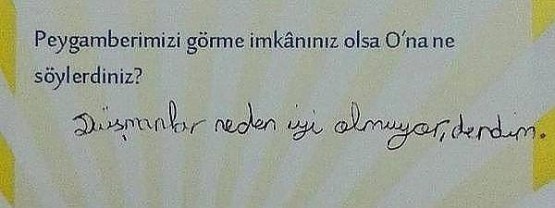 Peygamberimizi görme imkânınız olsa O'na ne
söylerdiniz?
Düşmanlar neden iyi olmuyor, derdim.